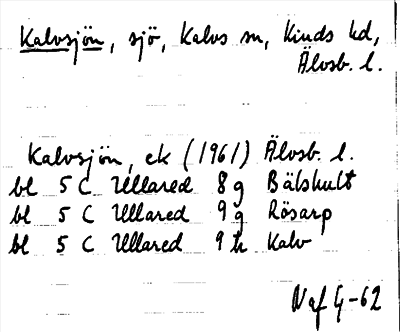 Kalvsjön, sjö, Kalvs sn, Kinds hd,
Älvsb. l.
Kalvsjön, ek (1961) Älvsb. l.
bl 5 C Ullared 8 g Bälshult
bl 5 C Ullared 9 g Rösarp
bl 5 C Ullared 9 h Kalv
NafG-62